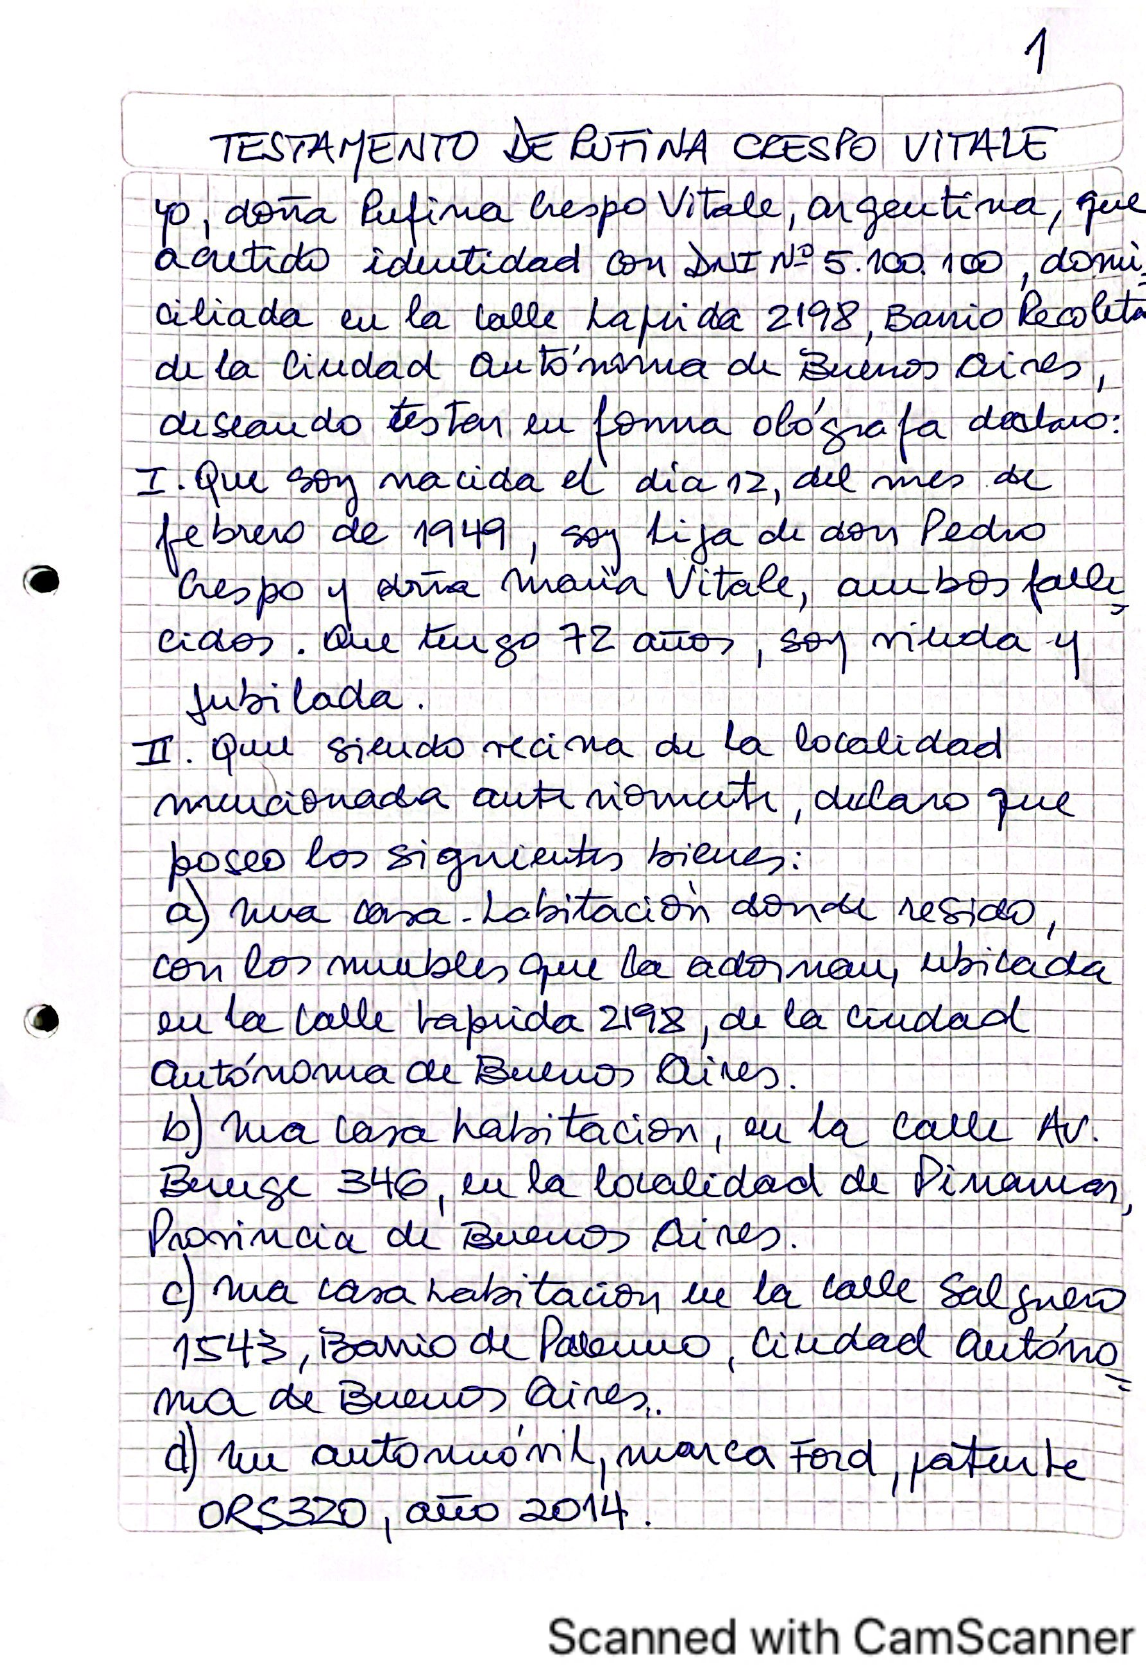 1
TESTAMENTO DE RUFINA CRESPO VITALE
yo, doña Rufina Crespo Vitale, argentina, que
acretido identidad con DNI Nº 5.100.100, domi-
ciliada en la calle Laprida 2198, Barrio Recoleta
de la Ciudad Autónoma de Buenos Aires,
deseando testar en forma ológrafa declaro:
I. Que soy nacida el día 12, del mes de
febrero de 1949, soy hija de don Pedro
Crespo y doña María Vitale, ambos falle-
cidos. Que tengo 72 años, soy viuda y
jubilada.
II. Que siendo vecina de la localidad
mencionada anteriormente, declaro que
poseo los siguientes bienes:
a) una casa-habitación donde resido,
con los muebles que la adornan, ubicada
en la calle Laprida 2198, de la ciudad
Autónoma de Buenos Aires.
b) una casa habitacion, en la calle Av.
Bunge 346, en la localidad de Pinamar,
Provincia de Buenos Aires.
c) una casa habitacion en la calle Salguero
1543, Barrio de Palermo, Ciudad Autóno=
ma de Buenos Aires.
d) un automóvil, marca Ford, patente
ORS320, año 2014.
Scanned with CamScanner